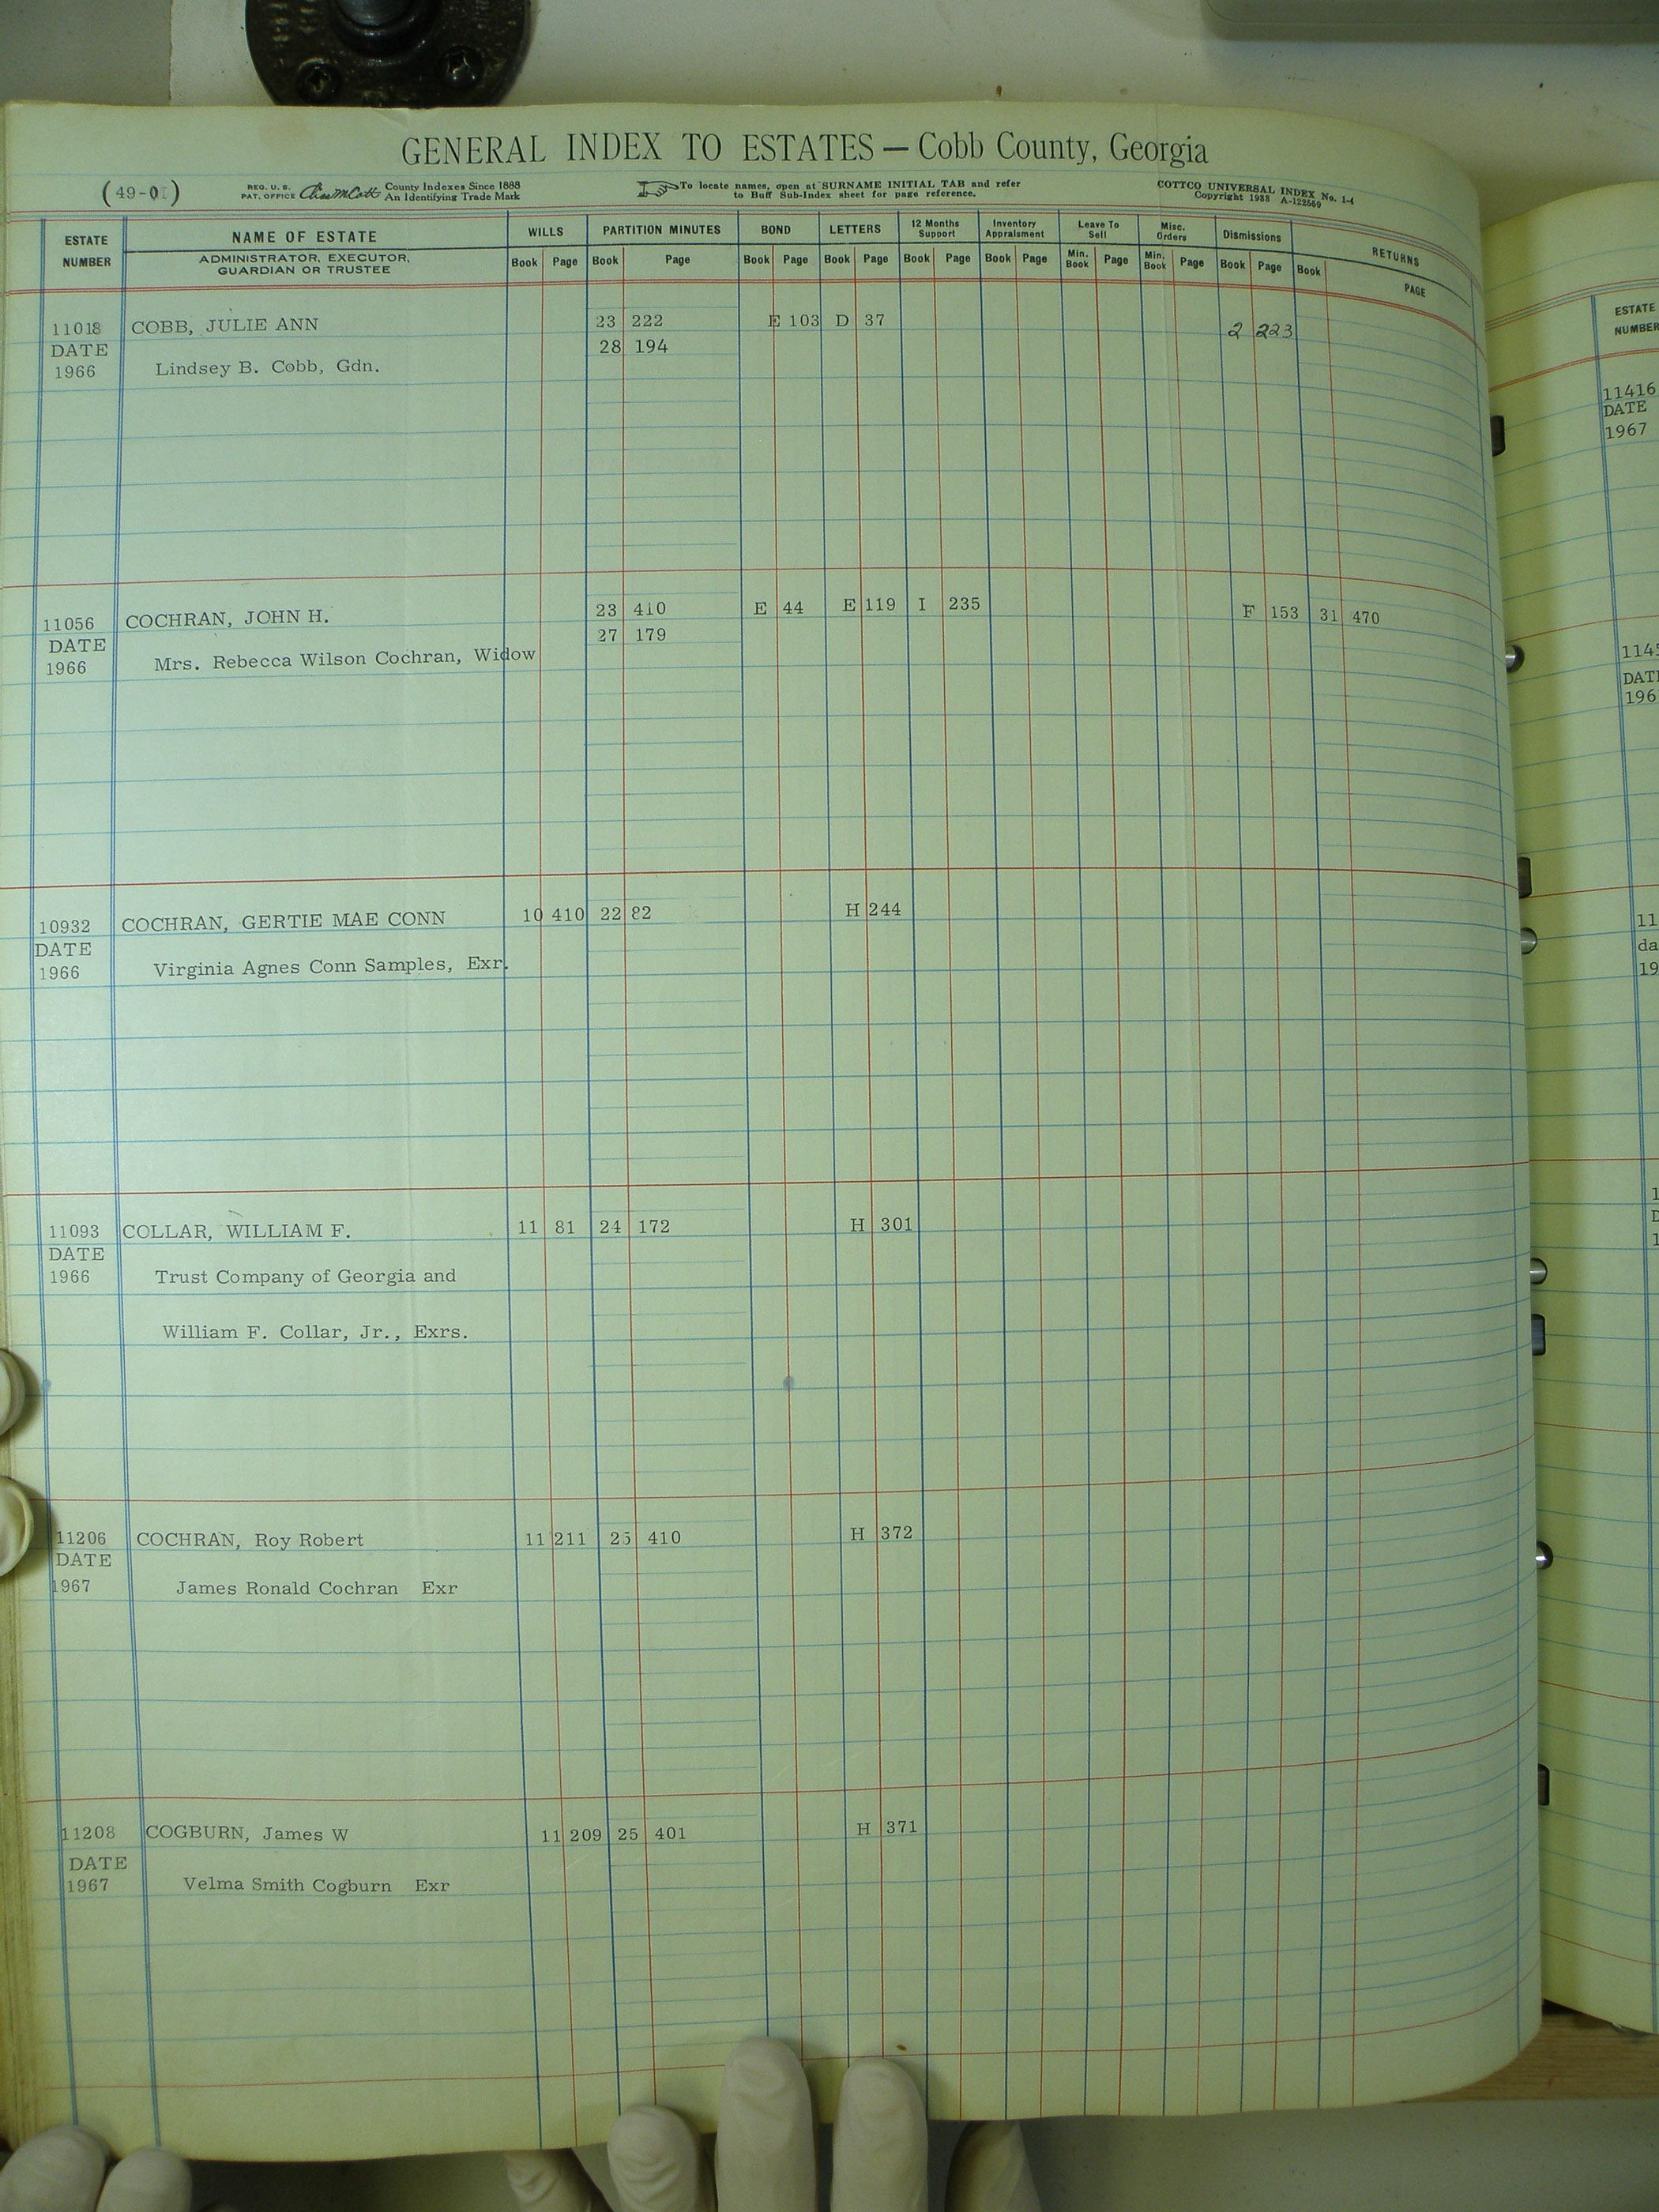 GENERAL INDEX TO ESTATES — Cobb County, Georgia
REG. U. S. PAT. OFFICE County Indexes Since 1888 An Identifying Trade Mark
To locate names, open at SURNAME INITIAL TAB and refer
to Buff Sub-Index sheet for page reference.
COTTCO UNIVERSAL INDEX No. 1-4
Copyright 1938 A-122569
ESTATE NUMBER
NAME OF ESTATE
ADMINISTRATOR, EXECUTOR,
GUARDIAN OR TRUSTEE
WILLS PARTITION MINUTES BOND LETTERS 12 Months Support Inventory Appraisment Leave To Sell Misc. Orders Dismissions RETURNS
Book Page Book Page Book Page Book Page Book Page Book Page Min. Book Page Min. Book Page Book Page Book PAGE
11018 COBB, JULIE ANN 23 222 E 103 D 37 2 223
DATE 28 194
1966 Lindsey B. Cobb, Gdn.
11056 COCHRAN, JOHN H. 23 410 E 44 E 119 I 235 F 153 31 470
DATE 27 179
1966 Mrs. Rebecca Wilson Cochran, Widow
10932 COCHRAN, GERTIE MAE CONN 10 410 22 82 H 244
DATE
1966 Virginia Agnes Conn Samples, Exr.
11093 COLLAR, WILLIAM F. 11 81 24 172 H 301
DATE
1966 Trust Company of Georgia and
William F. Collar, Jr., Exrs.
11206 COCHRAN, Roy Robert 11 211 25 410 H 372
DATE
1967 James Ronald Cochran Exr
11208 COGBURN, James W 11 209 25 401 H 371
DATE
1967 Velma Smith Cogburn Exr
ESTATE
NUMBER
11416
DATE
1967